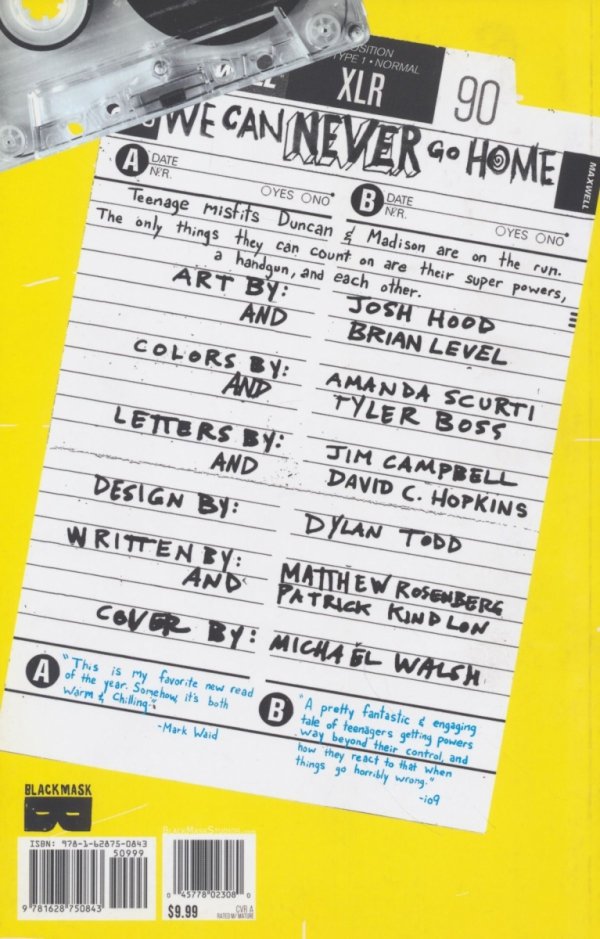 POSITION
TYPE 1 • NORMAL
XLR
90
WE CAN NEVER GO HOME
MAXWELL
A DATE
N'R.
OYES ONO
B DATE
N'R.
OYES ONO
Teenage misfits Duncan & Madison are on the run.
The only things they can count on are their super powers,
a handgun, and each other.
ART BY: JOSH HOOD
AND BRIAN LEVEL
COLORS BY: AMANDA SCURTI
AND TYLER BOSS
LETTERS BY: JIM CAMPBELL
AND DAVID C. HOPKINS
DESIGN BY: DYLAN TODD
WRITTEN BY: MATTHEW ROSENBERG
AND PATRICK KINDLON
COVER BY: MICHAEL WALSH
A "This is my favorite new read
of the year. Somehow, it's both
Warm & Chilling."
-Mark Waid
B "A pretty fantastic & engaging
tale of teenagers getting powers
way beyond their control, and
how they react to that when
things go horribly wrong."
-io9
BLACKMASK
ISBN: 978-1-62875-0843
50999
9 781628 750843
BLACKMASKSTUDIOS
0 45778 02308 0
$9.99
CVR A
RATED M/ MATURE